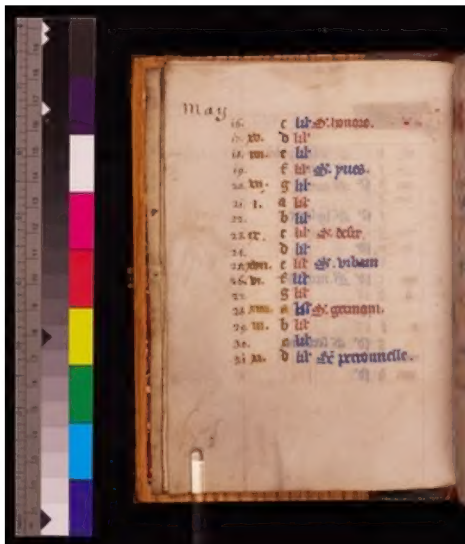 May
16. c kl' St. honore.
17. xv. d kl'
18. e kl'
19. f kl' St. yves.
20. g kl'
21. i. a kl'
22. b kl'
23. ix. c kl' St. desir
24. d kl'
25. e kl' St. urbain
26. vi. f kl'
27. g kl'
28. kl' St. germain.
29. iii. b kl'
30. c kl'
31. xi. d kl' Ste perronnelle.